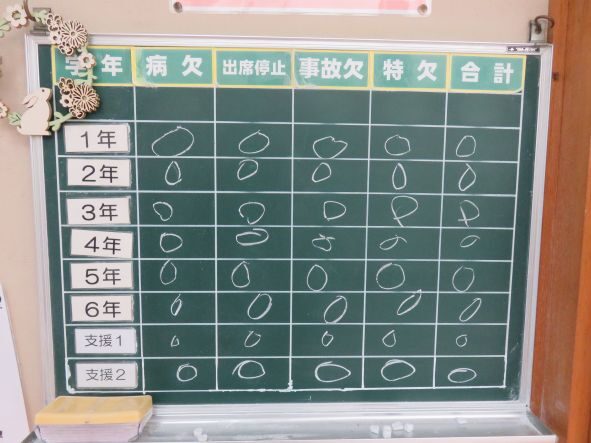 学年 病欠 出席停止 事故欠 特欠 合計
1年 0 0 0 0 0
2年 0 0 0 0 0
3年 0 0 0 0 0
4年 0 0 0 0 0
5年 0 0 0 0 0
6年 0 0 0 0 0
支援1 0 0 0 0 0
支援2 0 0 0 0 0